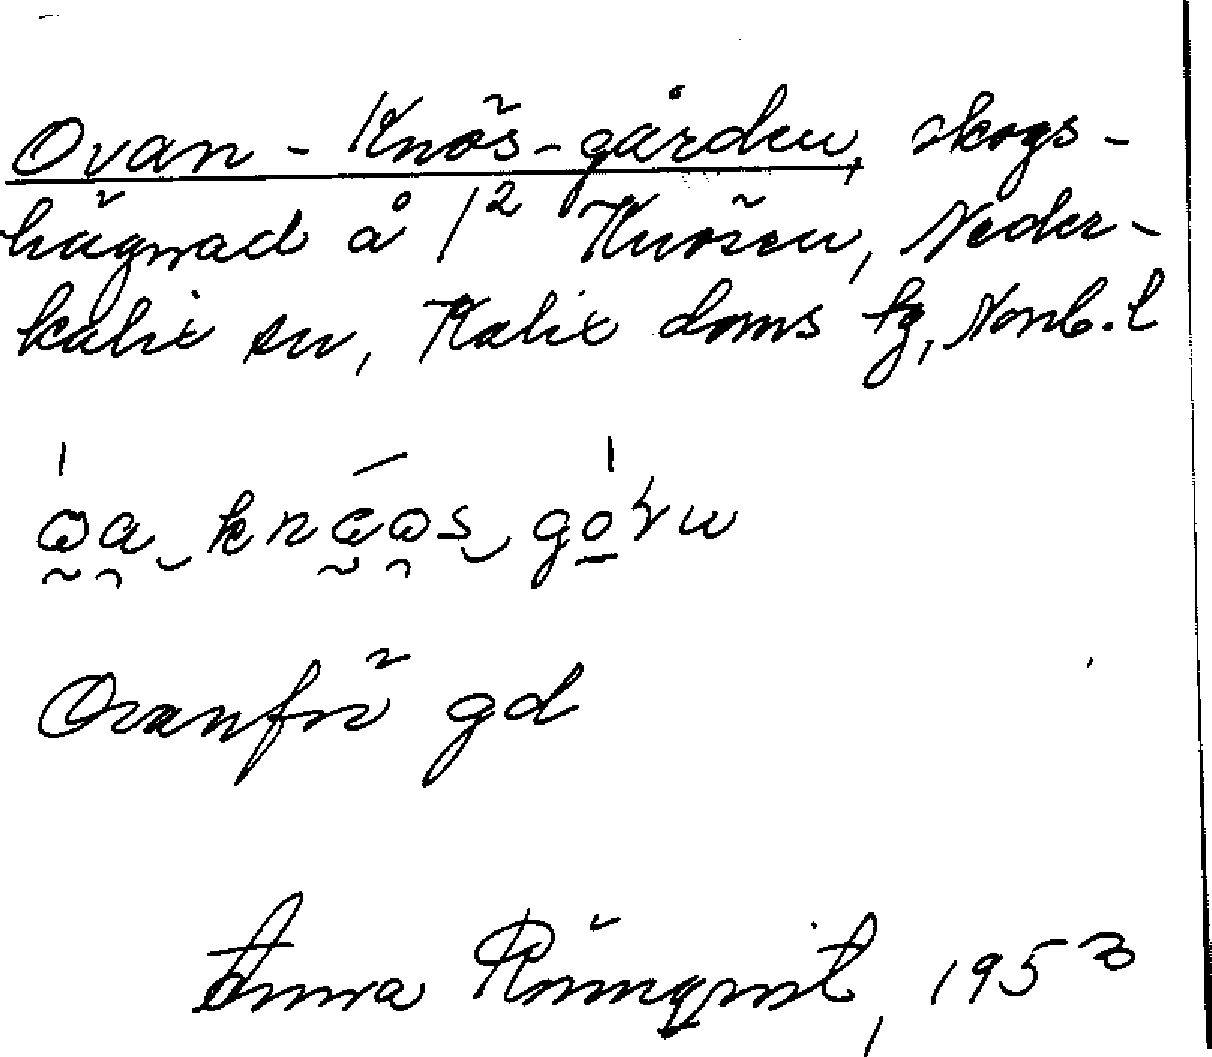 Ovan-Knös-gården, skogs-
hägnad å 1² Knösen, Neder-
kalix sn, Kalix doms tg, Norrb. l
Ovanför gd
Anna Rönnqvist, 1953